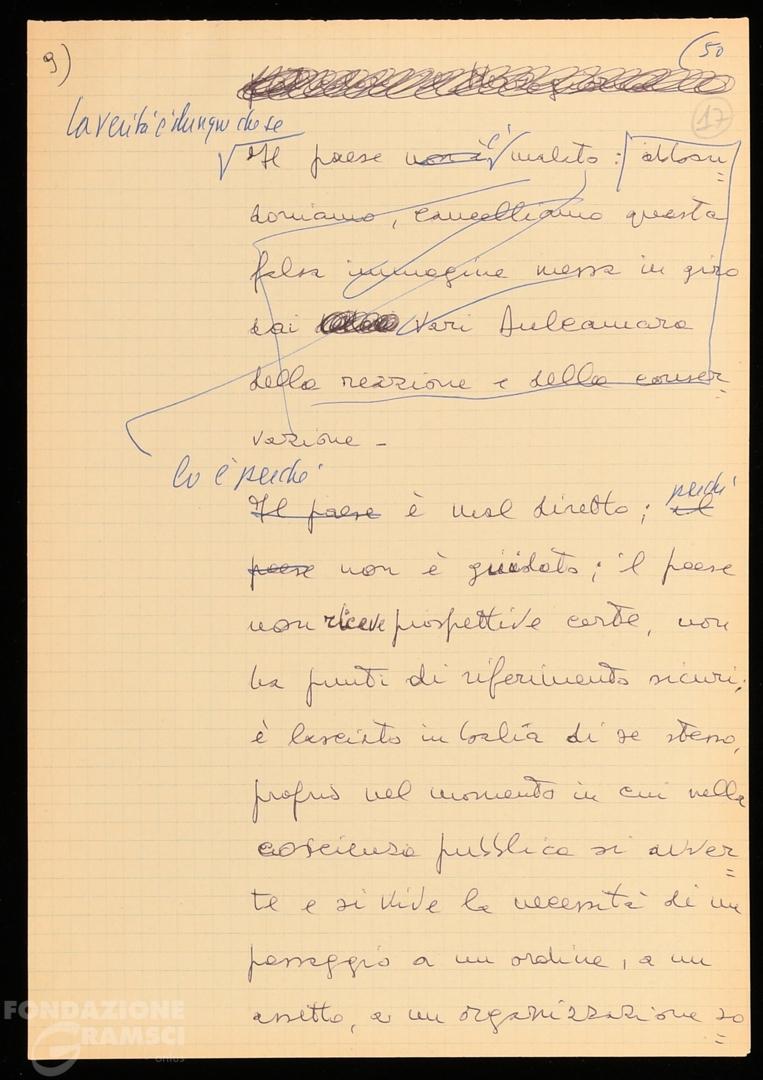 9)
(50
17
La verità è dunque che se
Il paese non è è malato: abban=
doniamo, cancelliamo questa
falsa immagine messa in giro
dai vari Dulcamara
della reazione e della conser=
vazione -
lo è perché
Il paese è mal diretto; perché il
paese non è guidato; il paese
non riceve prospettive certe, non
ha punti di riferimento sicuri;
è lasciato in balìa di se stesso,
proprio nel momento in cui nella
coscienza pubblica si avver=
te e si vive la necessità di un
passaggio a un ordine, a un
assetto, a un organizzazione so=
FONDAZIONE
GRAMSCI
onlus